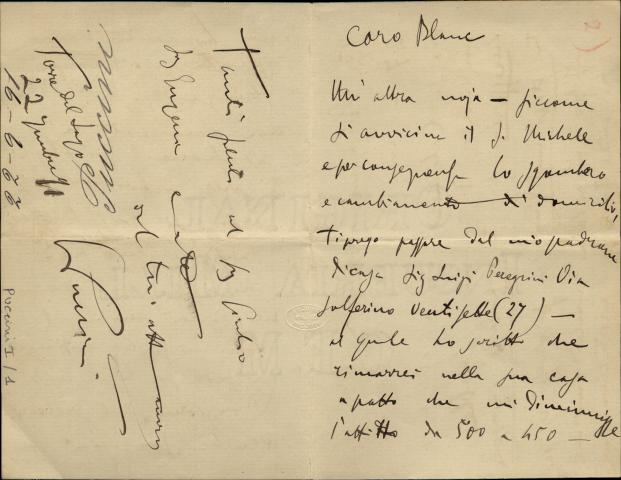 Caro Blanc
Un'altra noja — siccome
si avvicina il S. Michele
e per conseguenza lo sgombero
e cambiamento di domicilio,
ti prego passare dal mio padrone
di casa Sig Luigi Peregrini Via
Solferino Ventisette (27) —
al quale ho scritto che
rimarrei nella sua casa
a patto che mi diminuisse
l'affitto da 500 a 450 —
Tanti saluti al Sig Giulio
Sig Eugenia e
al tuo aff
Puccini
Torre del Lago
22
Puccini I/1